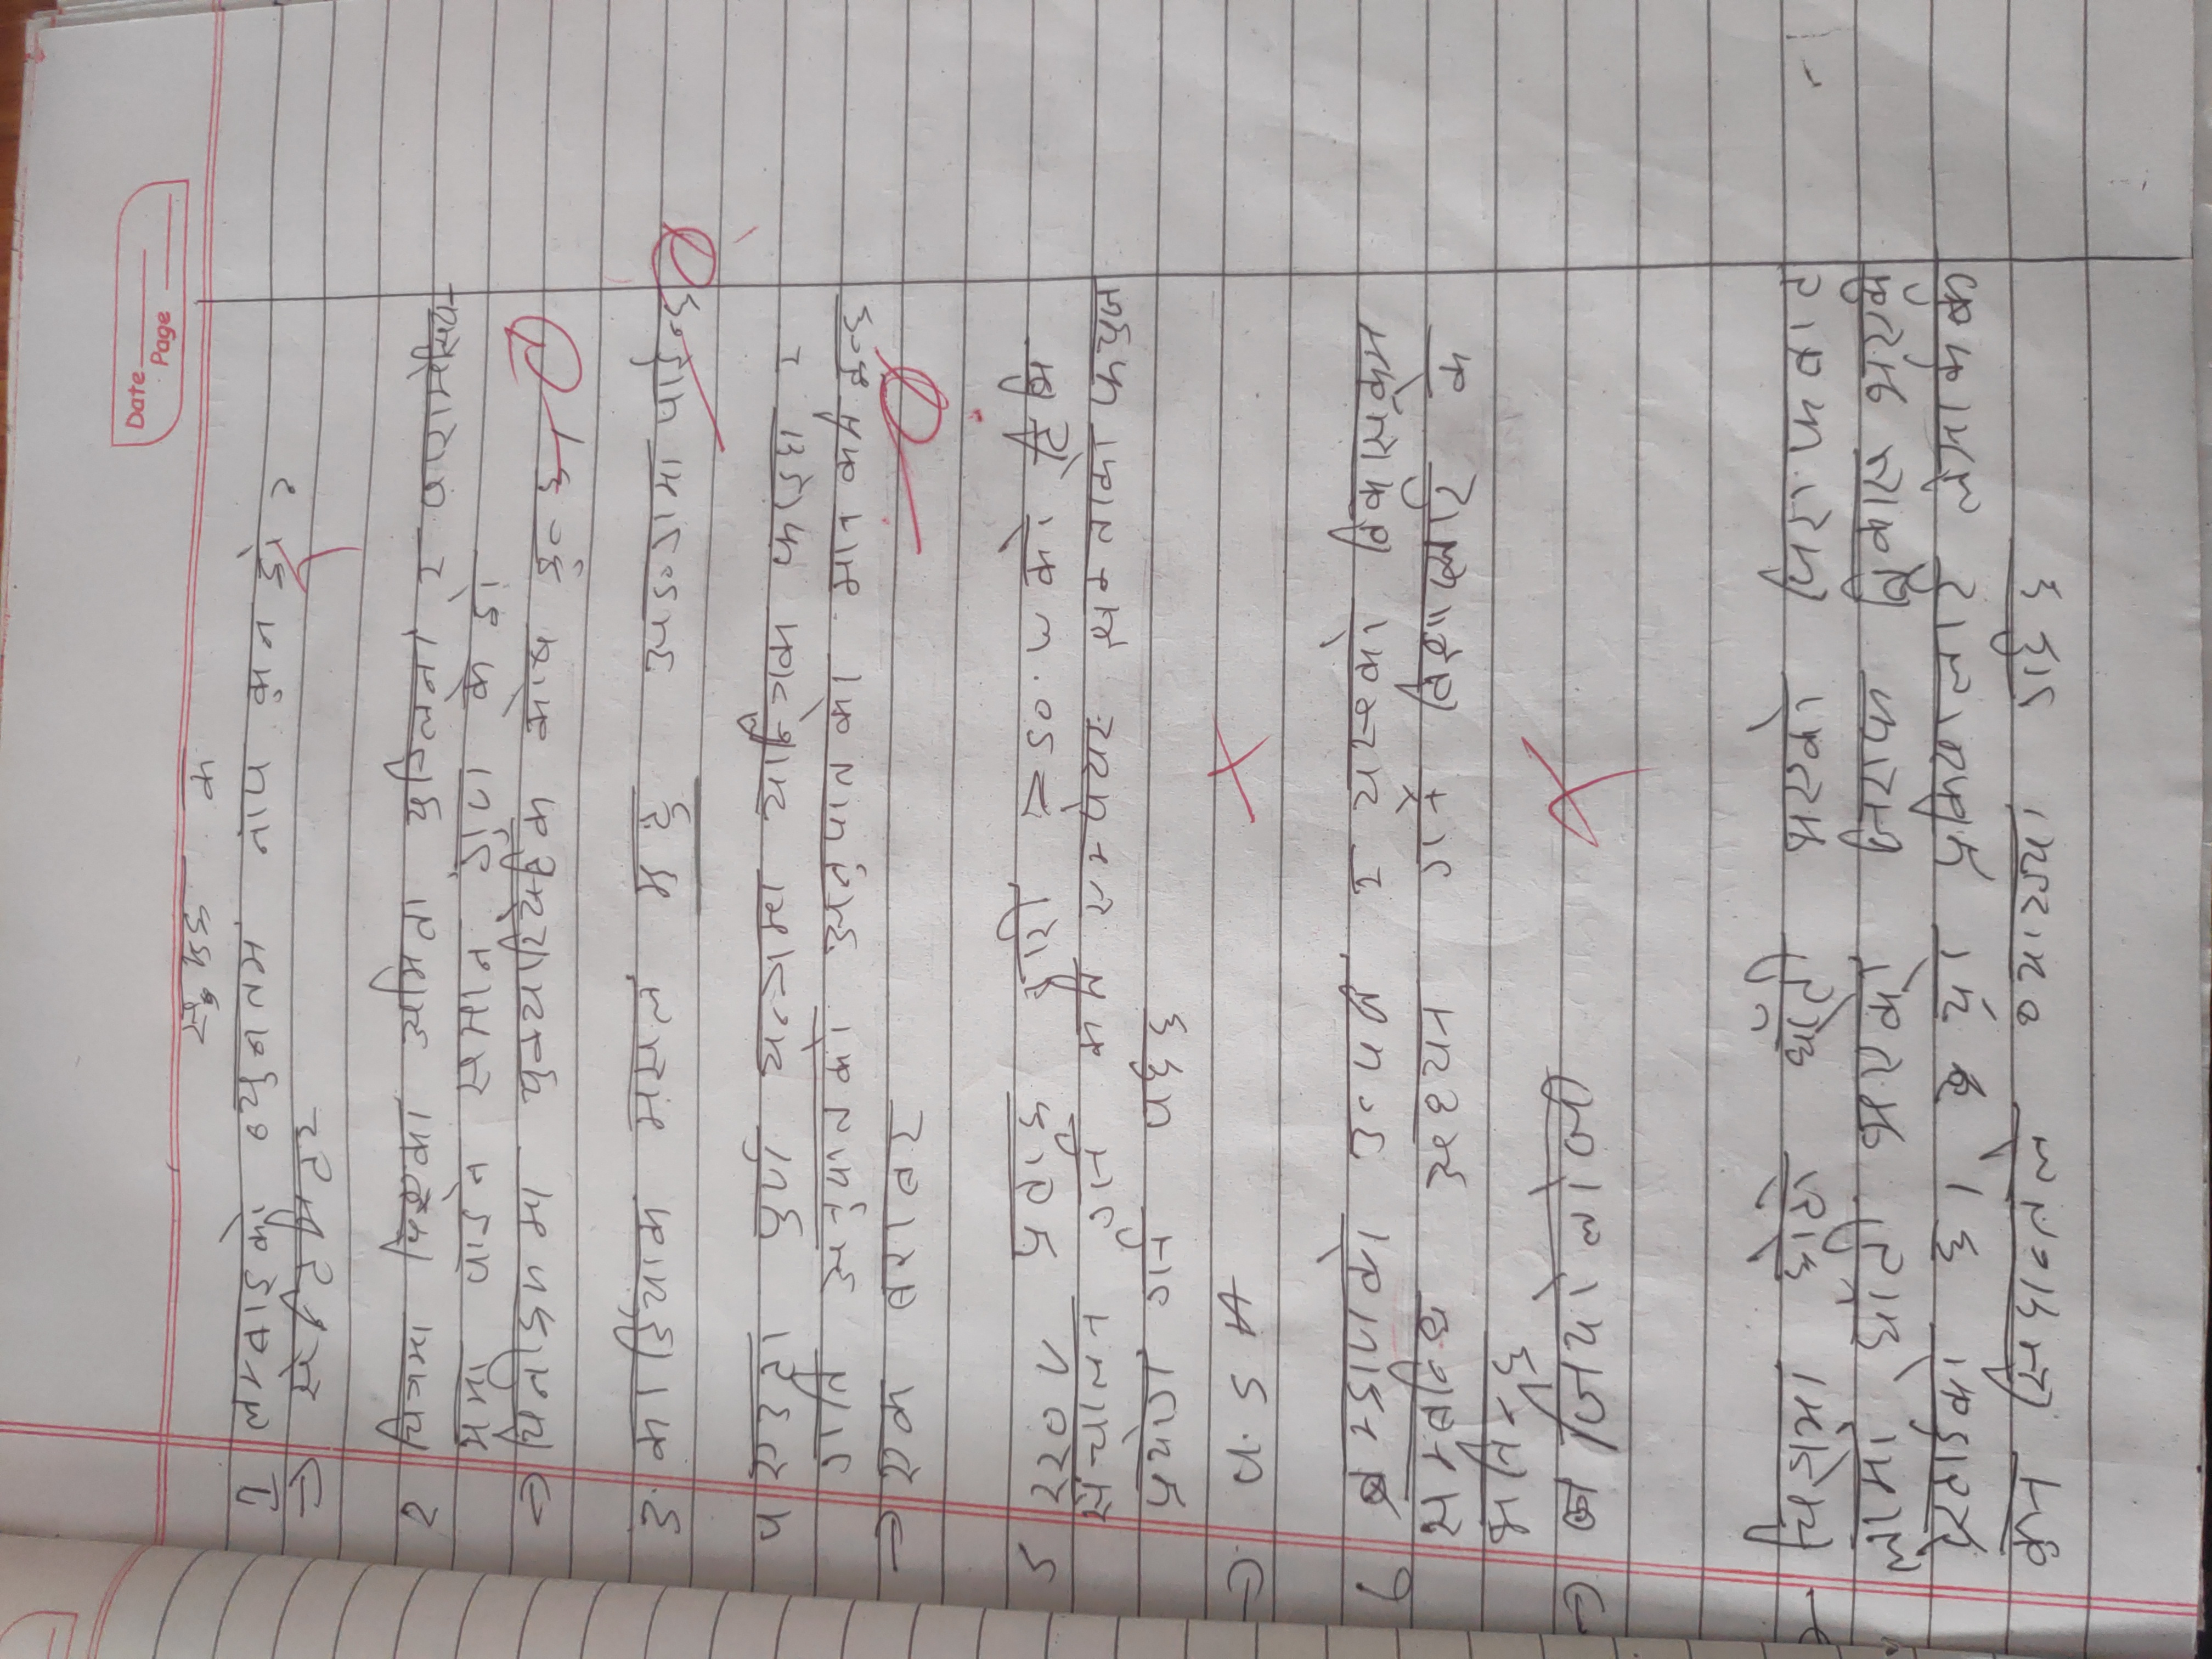 Date
Page
समूह क
१ लम्बाइको न्युनतम नाप कुन हो ?
⇒ सेन्टिमिटर
२ चित्रमा दिइएका अमिता युग्लिना र पारामेसिय-
ममा पाइने समान गुण के हो
⇒ यिनीहरुमा युक्यारियोटिक कोष हुन्छ
३. कार्डियाक मसल मुटु अङ्गमा पाईन्छ
४ एउटा पुर्ण यन्त्रमा यान्त्रिक फाइदा र
गति अनुपातको अनुपातको मान कति हुन्छ
⇒ एक बराबर
5 २२० V प्रवाह द्वारी ५०.W को टिभि
संचालन गर्न कति एम्पेयर क्षमताको फयुज
प्रयोग गर्न पर्दछ
⇒ ५. 5 A
6 ब्रम्हाणको उत्पति र यस्को विकासक्रम
सम्बन्धि अध्यन गर्ने विधालाई के
भनिन्छ
⇒ जियोलोजी
चित्रमा छोटो घाँटी भएको जिराफबाट
लामो घाँटी भएको जिराफ विकास भएको
देखाईको छ। यो प्रकियालाई लेमार्कको
कुन सिद्दान्तले व्याख्या गर्दछ